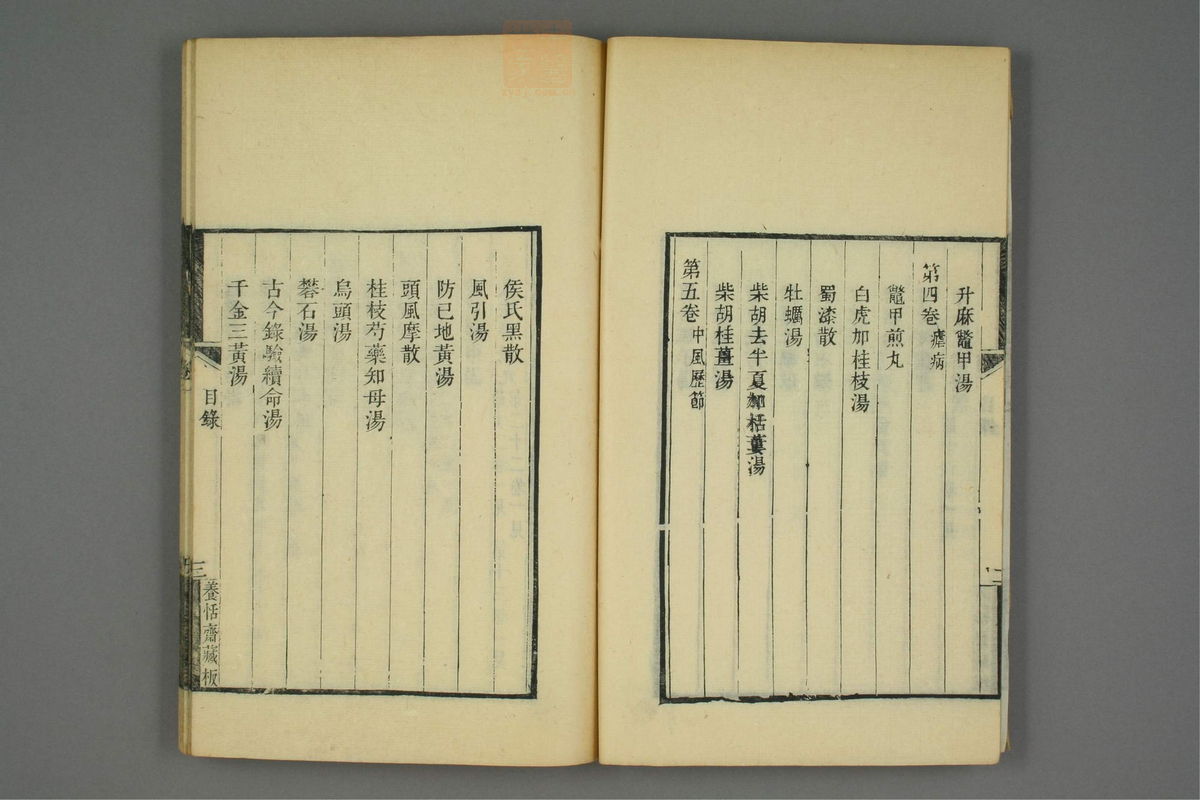 升麻鼈甲湯
第四卷 瘧病
鼈甲煎丸
白虎加桂枝湯
蜀漆散
牡蠣湯
柴胡去半夏加栝蔞湯
柴胡桂薑湯
第五卷 中風歷節
侯氏黑散
風引湯
防已地黃湯
頭風摩散
桂枝芍藥知母湯
烏頭湯
礬石湯
古今錄驗續命湯
千金三黃湯
目錄
三
養恬齋藏板